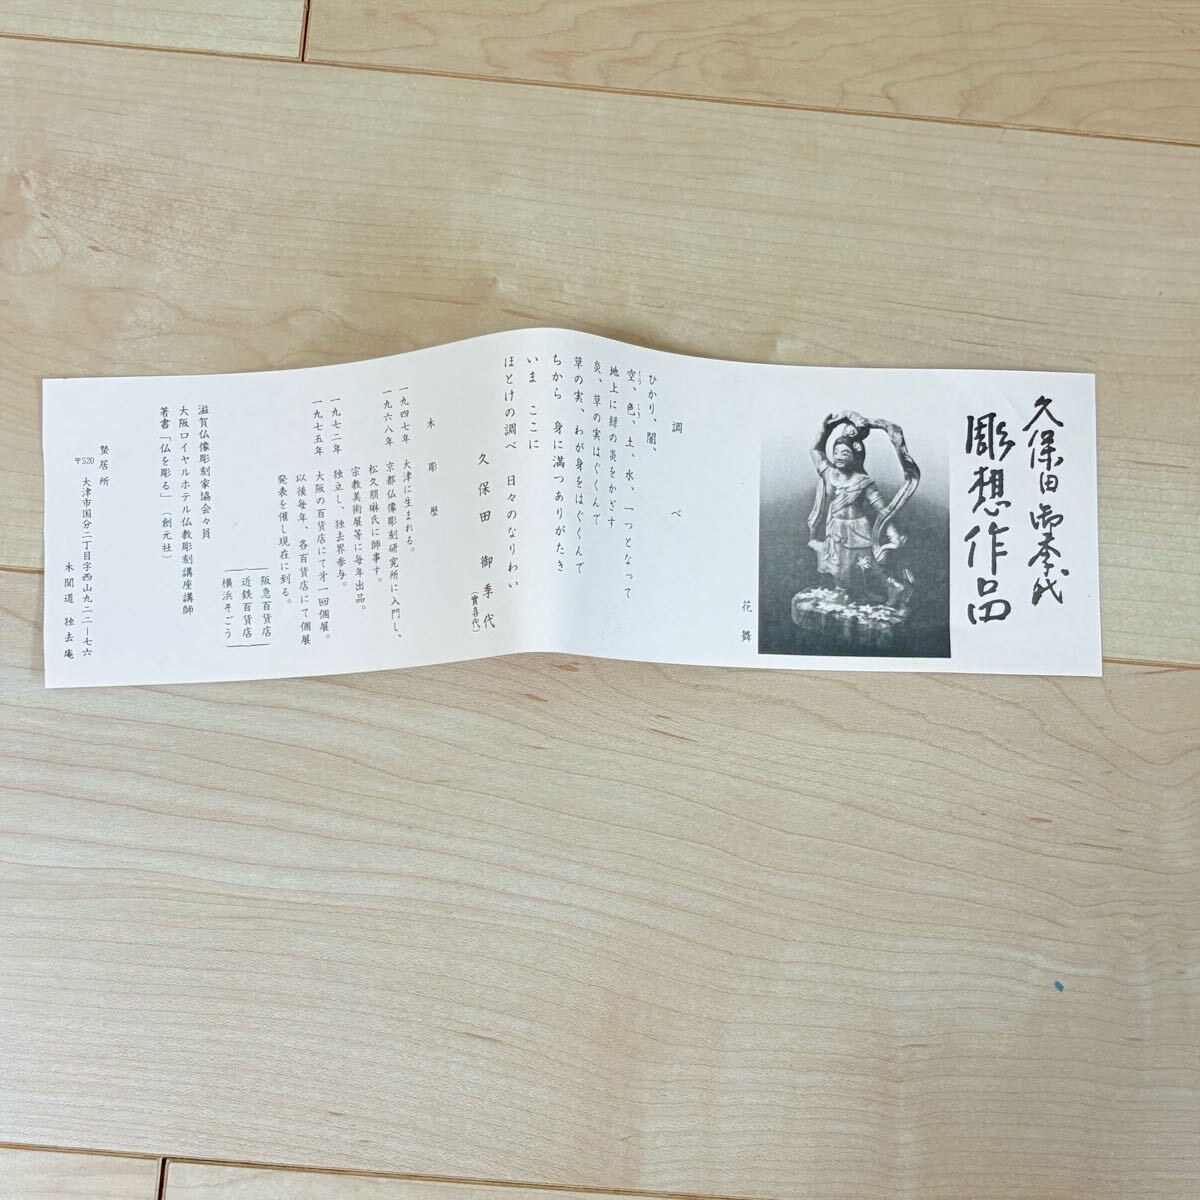 久保田御季代
彫想作品
花舞
調べ
ひかり、闇、
空、色、土、水、一つとなって
地上に緑の炎をかざす
炎、草の実はぐくんで
草の実、わが身をはぐくんで
ちから 身に満つありがたき
いま ここに
ほとけの調べ 日々のなりわい
久保田 御季代
(實喜代)
木彫歴
一九四七年 大津に生まれる。
一九六八年 京都仏像彫刻研究所に入門し、
松久朋琳氏に師事す。
宗教美術展等に毎年出品。
一九七二年 独立し、独去界参与。
一九七五年 大阪の百貨店にて才一回個展。
以後毎年、各百貨店にて個展
発表を催し現在に到る。
阪急百貨店
近鉄百貨店
横浜そごう
滋賀仏像彫刻家協会々員
大阪ロイヤルホテル仏教彫刻講座講師
著書「仏を彫る」(創元社)
蟄居所
〒520 大津市国分二丁目字西山九二二ー七六
木聞道 独去庵